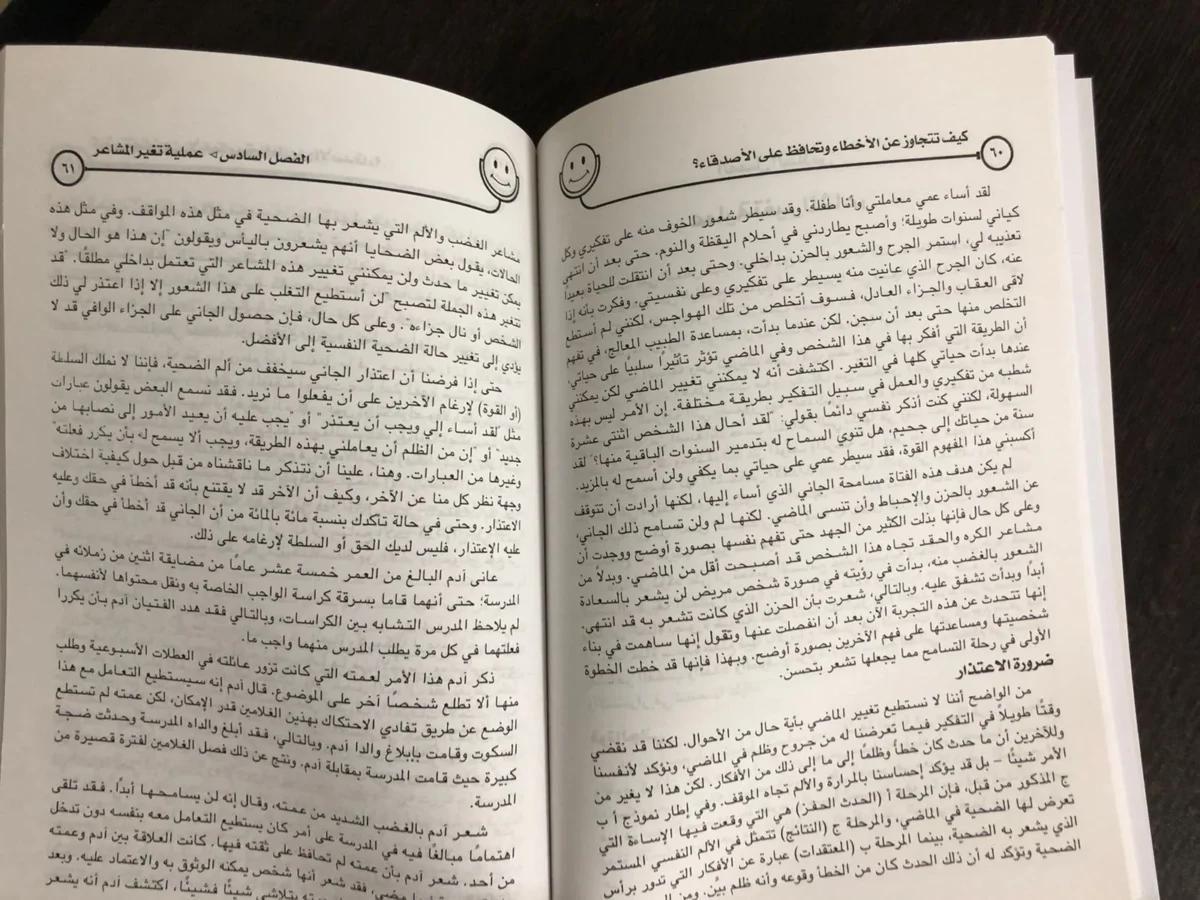 كيف تتجاوز عن الأخطاء وتحافظ على الأصدقاء؟
٦٠
لقد أساء عمي معاملتي وأنا طفلة. وقد سيطر شعور الخوف منه على تفكيري وكل
كياني لسنوات طويلة؛ وأصبح يطاردني في أحلام اليقظة والنوم. حتى بعد أن انتهى
تعذيبه لي، استمر الجرح والشعور بالحزن بداخلي. وحتى بعد أن انتقلت للحياة بعيداً
عنه، كان الجرح الذي عانيت منه يسيطر على تفكيري وعلى نفسيتي. وفكرت بأنه إذا
لاقى العقاب والجزاء العادل، فسوف أتخلص من تلك الهواجس، لكنني لم أستطع
التخلص منها حتى بعد أن سجن. لكن عندما بدأت، بمساعدة الطبيب المعالج، في تفهم
أن الطريقة التي أفكر بها في هذا الشخص وفي الماضي تؤثر تأثيرًا سلبيًا على حياتي،
عندها بدأت حياتي كلها في التغير. اكتشفت أنه لا يمكنني تغيير الماضي لكن يمكنني
شطبه من تفكيري والعمل في سبيل التفكير بطريقة مختلفة. إن الأمر ليس بهذه
السهولة، لكنني كنت أذكر نفسي دائمًا بقولي: "لقد أحال هذا الشخص اثنتي عشرة
سنة من حياتك إلى جحيم، هل تنوي السماح له بتدمير السنوات الباقية منها؟" لقد
أكسبني هذا المفهوم القوة، فقد سيطر عمي على حياتي بما يكفي ولن أسمح له بالمزيد.
لم يكن هدف هذه الفتاة مسامحة الجاني الذي أساء إليها، لكنها أرادت أن تتوقف
عن الشعور بالحزن والإحباط وأن تنسى الماضي. لكنها لم ولن تسامح ذلك الجاني،
وعلى كل حال فإنها بذلت الكثير من الجهد حتى تفهم نفسها بصورة أوضح ووجدت أن
مشاعر الكره والحقد تجاه هذا الشخص قد أصبحت أقل من الماضي. وبدلاً من
الشعور بالغضب منه، بدأت في رؤيته في صورة شخص مريض لن يشعر بالسعادة
أبدًا وبدأت تشفق عليه. وبالتالي، شعرت بأن الحزن الذي كانت تشعر به قد انتهى.
إنها تتحدث عن هذه التجربة الآن بعد أن انفصلت عنها وتقول إنها ساهمت في بناء
شخصيتها ومساعدتها على فهم الآخرين بصورة أوضح. وبهذا فإنها قد خطت الخطوة
الأولى في رحلة التسامح مما يجعلها تشعر بتحسن.
ضرورة الاعتذار
من الواضح أننا لا نستطيع تغيير الماضي بأية حال من الأحوال. لكننا قد نقضي
وقتًا طويلاً في التفكير فيما تعرضنا له من جروح وظلم في الماضي، ونؤكد لأنفسنا
وللآخرين أن ما حدث كان خطأ وظلمًا إلى ما إلى ذلك من الأفكار. لكن هذا لا يغير من
الأمر شيئًا – بل قد يؤكد إحساسنا بالمرارة والألم تجاه الموقف. وفي إطار نموذج أ ب
ج المذكور من قبل، فإن المرحلة أ (الحدث الحفز) هي التي وقعت فيها الإساءة التي
تعرض لها الضحية في الماضي، والمرحلة ج (النتائج) تتمثل في الألم النفسي المستمر
الذي يشعر به الضحية، بينما المرحلة ب (المعتقدات) عبارة عن الأفكار التي تدور برأس
الضحية وتؤكد له أن ذلك الحدث كان من الخطأ وقوعه وأنه ظلم بيّن. ومن
الفصل السادس ◁ عملية تغير المشاعر
٦١
مشاعر الغضب والألم التي يشعر بها الضحية في مثل هذه المواقف. وفي مثل هذه
الحالات، يقول بعض الضحايا أنهم يشعرون باليأس ويقولون "إن هذا هو الحال ولا
يمكن تغيير ما حدث ولن يمكنني تغيير هذه المشاعر التي تعتمل بداخلي مطلقًا. "قد
تتغير هذه الجملة لتصبح "لن أستطيع التغلب على هذا الشعور إلا إذا اعتذر لي ذلك
الشخص أو نال جزاءه". وعلى كل حال، فإن حصول الجاني على الجزاء الوافي قد لا
يؤدي إلى تغيير حالة الضحية النفسية إلى الأفضل.
حتى إذا فرضنا أن اعتذار الجاني سيخفف من ألم الضحية، فإننا لا نملك السلطة
(أو القوة) لإرغام الآخرين على أن يفعلوا ما نريد. فقد نسمع البعض يقولون عبارات
مثل "لقد أساء إلي ويجب أن يعتذر" أو "يجب عليه أن يعيد الأمور إلى نصابها من
جديد" أو "إن من الظلم أن يعاملني بهذه الطريقة، ويجب ألا يسمح له بأن يكرر فعلته"
وغيرها من العبارات. وهنا، علينا أن نتذكر ما ناقشناه من قبل حول كيفية اختلاف
وجهة نظر كل منا عن الآخر، وكيف أن الآخر قد لا يقتنع بأنه قد أخطأ في حقك وعليه
الاعتذار. وحتى في حالة تأكدك بنسبة مائة بالمائة من أن الجاني قد أخطأ في حقك وأن
عليه الإعتذار، فليس لديك الحق أو السلطة لإرغامه على ذلك.
عانى آدم البالغ من العمر خمسة عشر عامًا من مضايقة اثنين من زملائه في
المدرسة؛ حتى أنهما قاما بسرقة كراسة الواجب الخاصة به ونقل محتواها لأنفسهما.
لم يلاحظ المدرس التشابه بين الكراسات، وبالتالي فقد هدد الفتيان آدم بأن يكررا
فعلتهما في كل مرة يطلب المدرس منهما واجب ما.
ذكر آدم هذا الأمر لعمته التي كانت تزور عائلته في العطلات الأسبوعية وطلب
منها ألا تطلع شخصًا آخر على الموضوع. قال آدم إنه سيستطيع التعامل مع هذا
الوضع عن طريق تفادي الاحتكاك بهذين الغلامين قدر الإمكان، لكن عمته لم تستطع
السكوت وقامت بإبلاغ والدا آدم. وبالتالي، فقد أبلغ والداه المدرسة وحدثت ضجة
كبيرة حيث قامت المدرسة بمقابلة آدم. ونتج عن ذلك فصل الغلامين لفترة قصيرة من
المدرسة.
شعر آدم بالغضب الشديد من عمته، وقال إنه لن يسامحها أبدًا. فقد تلقى
اهتمامًا مبالغًا فيه في المدرسة على أمر كان يستطيع التعامل معه بنفسه دون تدخل
من أحد. شعر آدم بأن عمته لم تحافظ على ثقته فيها. كانت العلاقة بين آدم وعمته
مضى، فقد شعر أنها شخص يمكنه الوثوق به والاعتماد عليه. وبعد
يتلاشى شيئًا فشيئًا، اكتشف آدم أنه يشعر